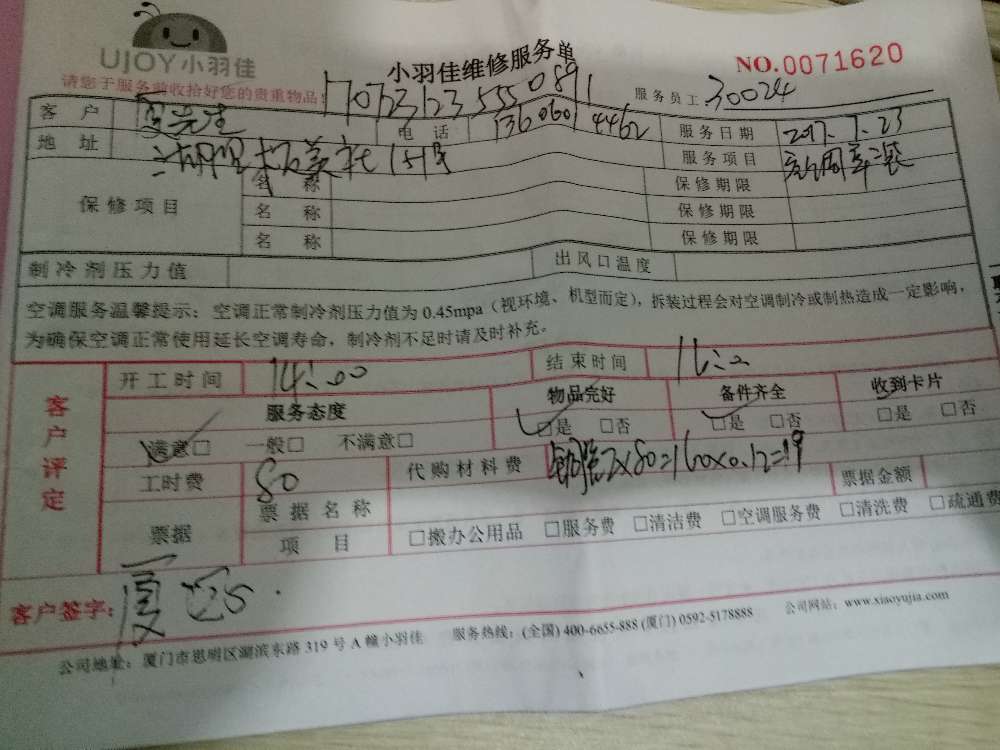 UJOY小羽佳
小羽佳维修服务单
NO.0071620
请您于服务前收拾好您的贵重物品:
707231235550891
服务员工 30024
客户 夏先生 电话 13606014462 服务日期 2017.7.23
地址 151号 服务项目
保修项目 名称 保修期限
名称 保修期限
名称 保修期限
制冷剂压力值 出风口温度
空调服务温馨提示：空调正常制冷剂压力值为 0.45mpa（视环境、机型而定），拆装过程会对空调制冷或制热造成一定影响，
为确保空调正常使用延长空调寿命，制冷剂不足时请及时补充。
客户评定
开工时间 14:00 结束时间
服务态度 物品完好 备件齐全 收到卡片
满意□ 一般□ 不满意□ □是 □否 □是 □否 □是 □否
工时费 80 代购材料费 2x80=160x0.12=19
票据 票据名称 票据金额
项目 □搬办公用品 □服务费 □清洁费 □空调服务费 □清洗费 □疏通费
客户签字: 夏
公司地址：厦门市思明区湖滨东路 319 号 A 幢小羽佳 服务热线：(全国) 400-6655-888 (厦门) 0592-5178888 公司网站：www.xiaoyujia.com